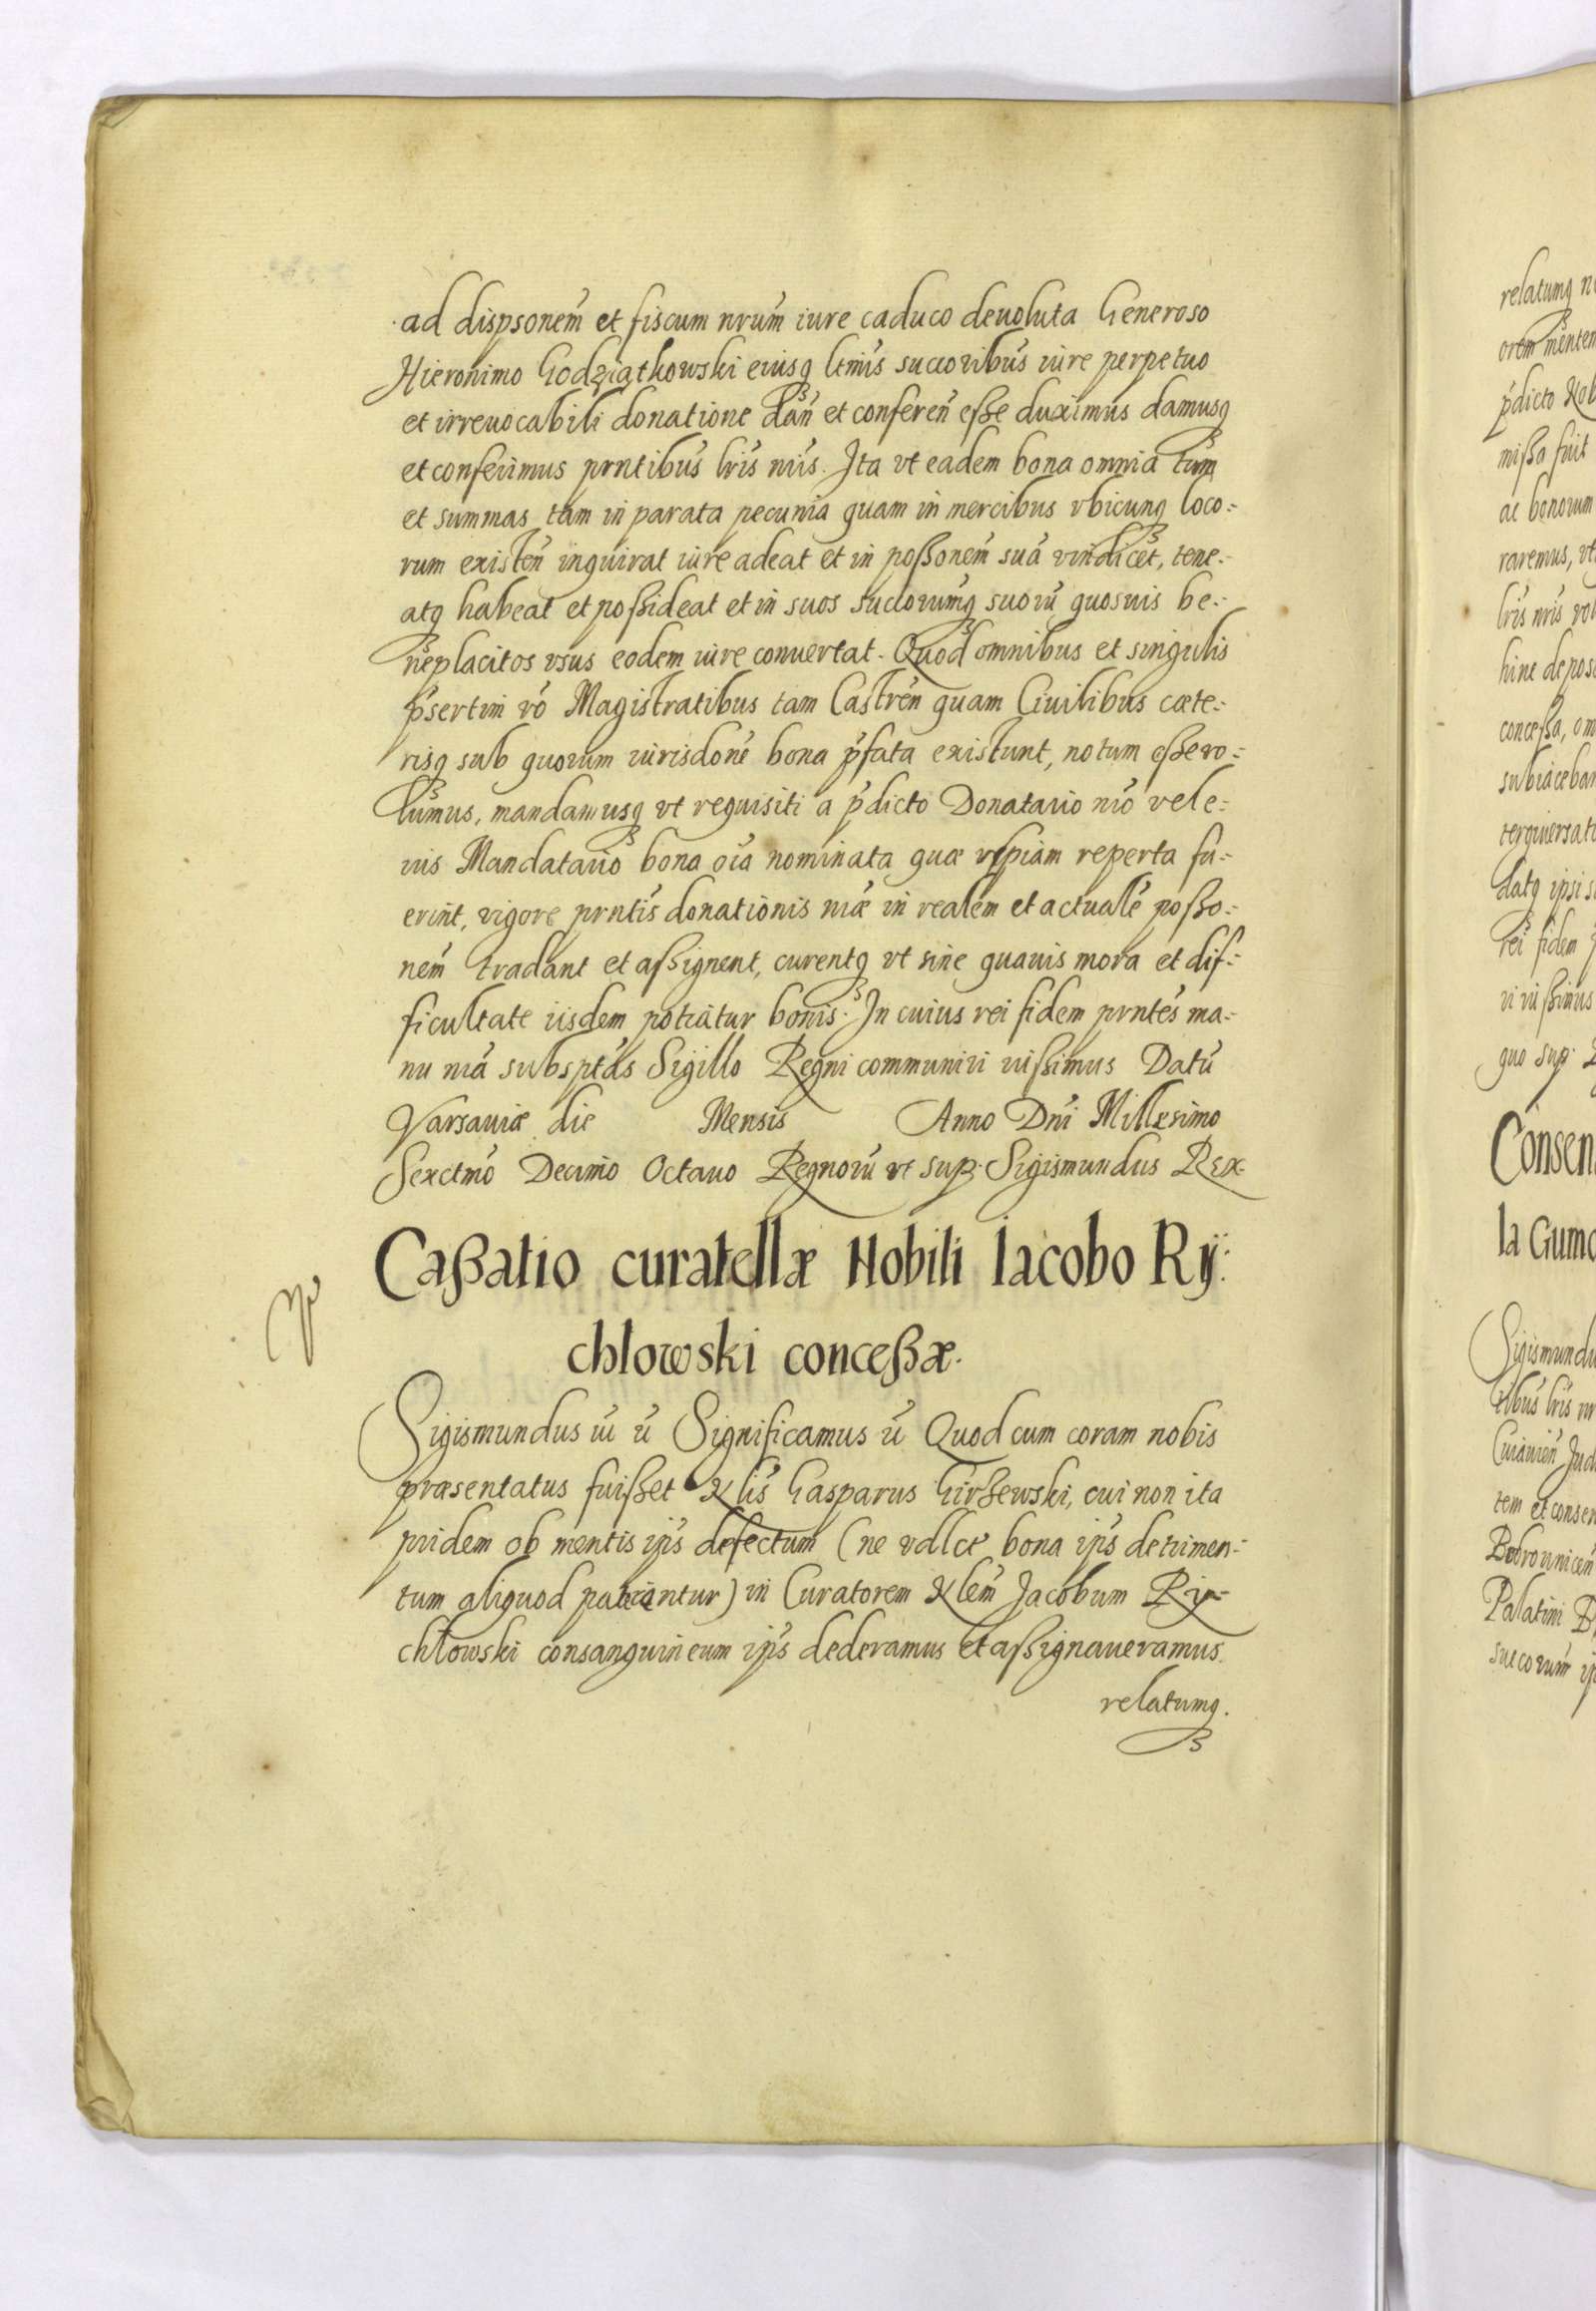 ad dispsonem̃ et fiscum nrum̃ iure caduco deuoluta Generoso
Hieronimo Godziątkowski eiusq ltmis succoribus iure perpetuo
et irreuocabili donatione dan̄ et conferen̄ eße duximus damusq
et conferimus prntibus lris nris. Ita vt eadem bona omnia tum
et summas tam in parata pecunia quam in mercibus vbicunq loco-:
rum existen̄ inquirat iure adeat et in poßonem̃ suā vindicet, tene-:
atq habeat et poßideat et in suos succorumq suorū quosuis be-:
neplacitos vsus eodem iure conuertat. Quod omnibus et singulis
p̃sertim vō Magistratibus tam Castren̄ quam Ciuilibus cæte-:
risq sub quorum iurisdone bona p̃fata existunt, notum eße vo-:
lumus, mandamusq vt requisiti a p̃dicto Donatario nro vel e-:
ius Mandatario bona oīa nominata quæ vspiam reperta fu-:
erint, vigore prntis donationis nræ in realem et actualē poßo-:
nem̃ tradant et aßignent, curentq vt sine quauis mora et dif-:
ficultate iisdem potiatur bonis. In cuius rei fidem prntes ma-:
nu nrā subsptas Sigillo Regni communiri iußimus Datū
Varsauiæ die Mensis Anno Dni Millesimo
Sexctmo Decimo Octauo Regnorū vt sup. Sigismundus Rex
Caßatio curatellæ Nobili Iacobo Rÿ:
chlowski conceßæ.
Sigismundus iii ū Significamus ū Quod cum coram nobis
præsentatus fuißet Nlis Gasparus Girßewski, cui non ita
pridem ob mentis ips defectum (ne vdlct bona ips detrimen-:
tum aliquod patiantur) in Curatorem Nlem̃ Jacobum Ry-:
chlowski consanguineum ips dederamus et aßignaueramus.
relatumq.
relatumq
mentem
p̃dicto
mißa fuit
ac bonorum
raremus, vt
lris nris
hinc
conceßa,
datq ipsi
rei fidem
quo sup.
Consen
la Gumo
Sigismundu
lris
tem et consen
Palatini